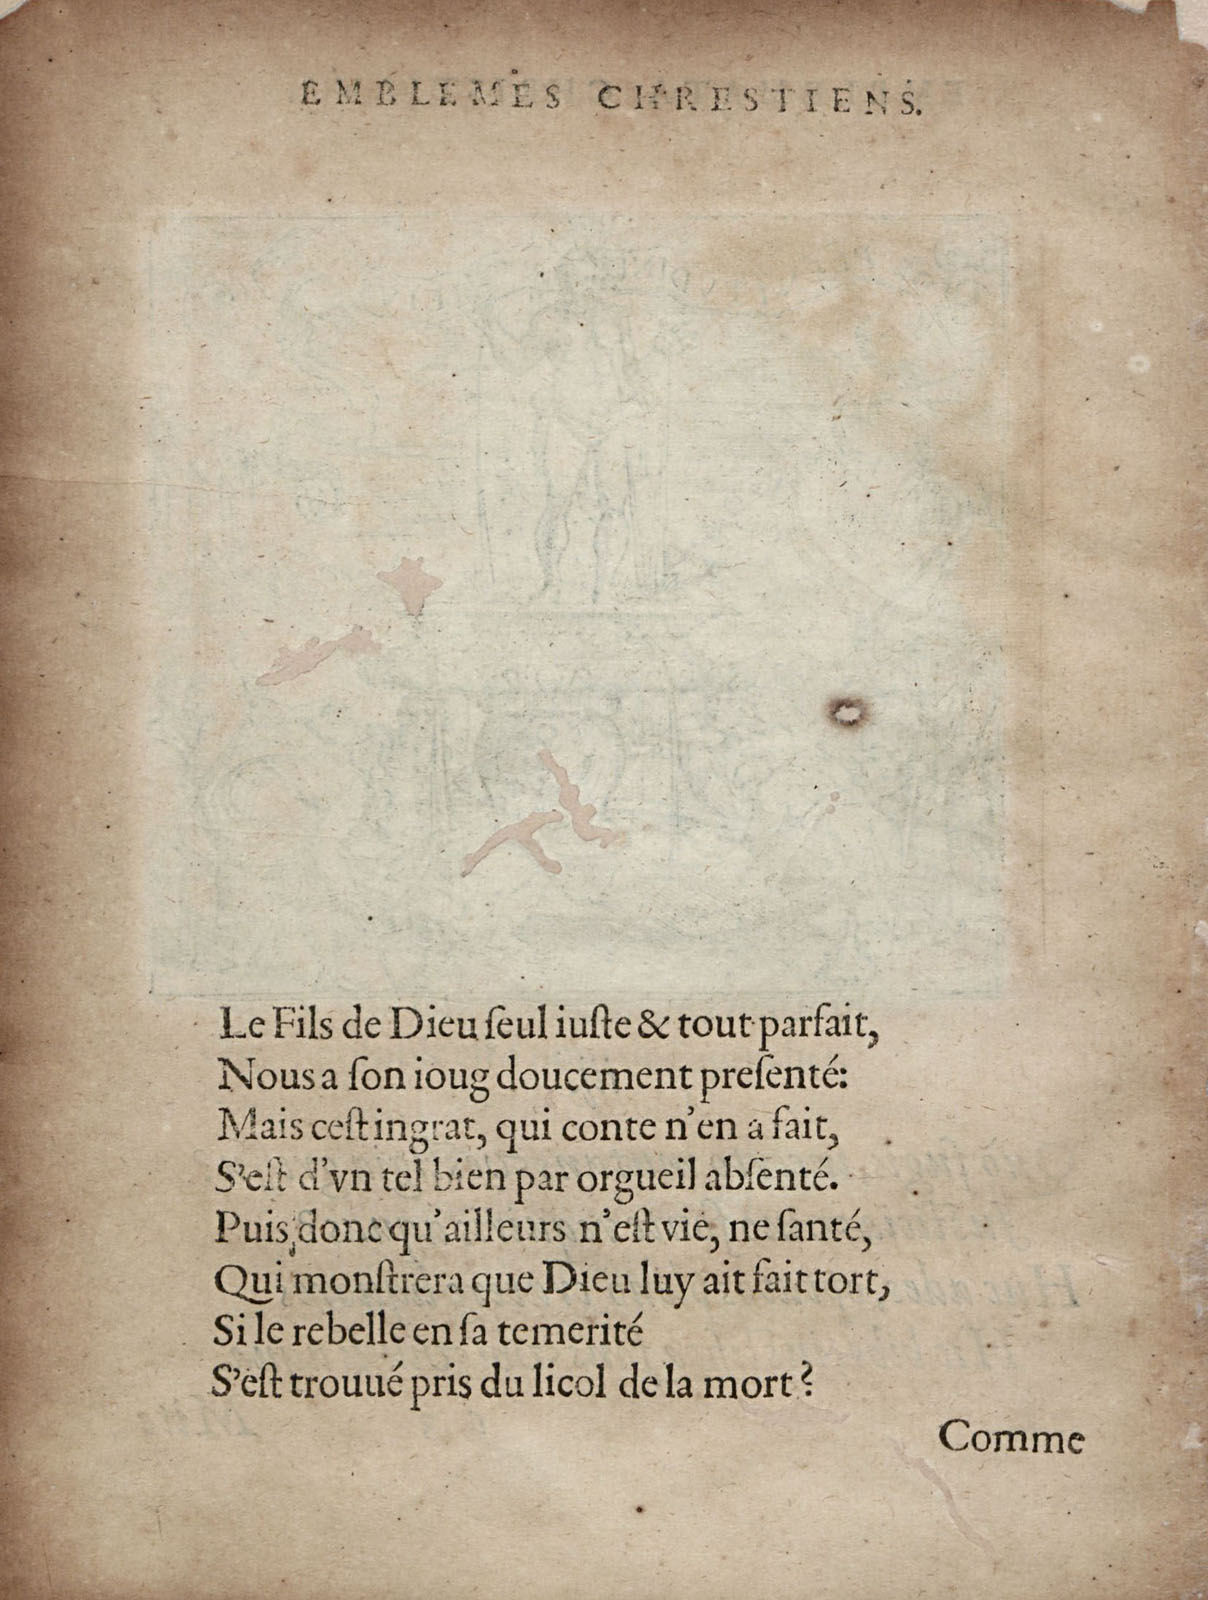 EMBLEMES CHRESTIENS.
Le Fils de Dieu ſeul iuſte & tout parfait,
Nous a ſon ioug doucement preſenté:
Mais ceſt ingrat, qui conte n'en a fait,
S'eſt d'vn tel bien par orgueil abſenté.
Puis donc qu'ailleurs n'eſt vie, ne ſanté,
Qui monſtrera que Dieu luy ait fait tort,
Si le rebelle en ſa temerité
S'eſt trouué pris du licol de la mort?
Comme